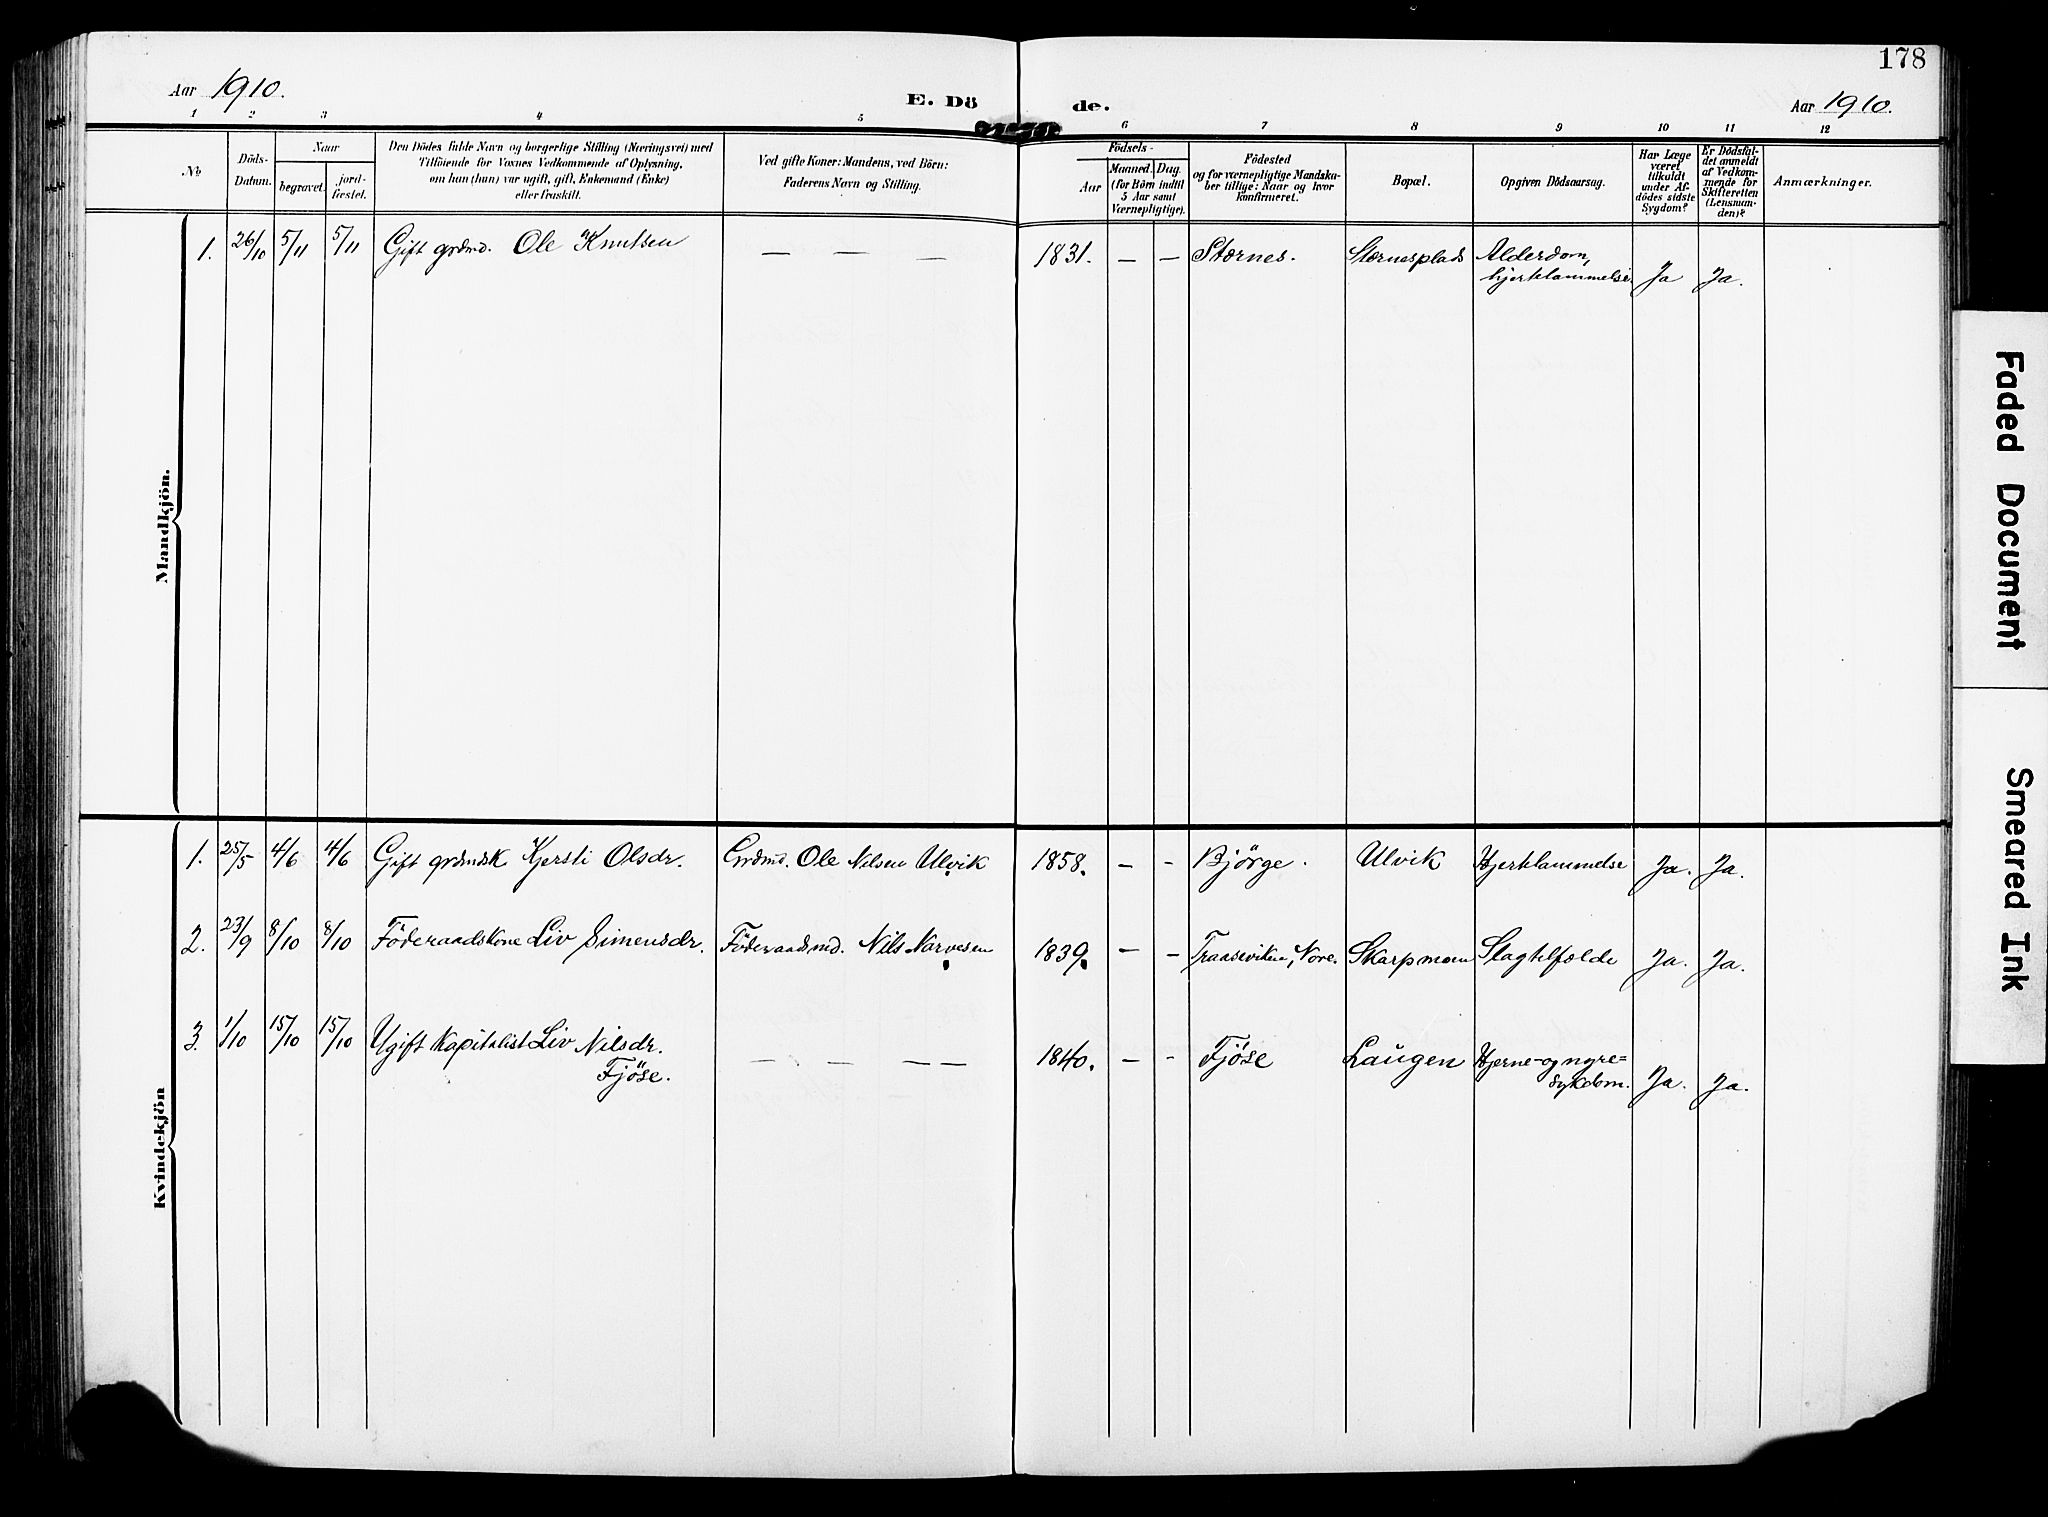 178
Aar 1910.
E. Dö de.
Aar 1910.
1 2 3 4 5 6 7 8 9 10 11 12
No
Döds-Datum.
Naar
begravet.
jord-fæstet.
Den Dödes fulde Navn og borgerlige Stilling (Næringsvei) med
Tilföiende for Voxnes Vedkommende af Oplysning,
om han (hun) var ugift, gift, Enkemand (Enke)
eller fraskilt.
Ved gifte Koner: Mandens, ved Börn:
Faderens Navn og Stilling.
Födsels-
Aar
Maaned. Dag.
(for Börn indtil
5 Aar samt
Værnepligtige).
Födested
og for værnepligtige Mandska-
ber tillige: Naar og hvor
konfirmeret.
Bopæl.
Opgiven Dödsaarsag.
Har Læge
været
tilkaldt
under Af-
dödes sidste
Sygdom?
Er Dödsfal-
det anmeldt
af Vedkom-
mende for
Skifteretten
(Lensman-
den)?
Anmærkninger.
Mandkjön.
1. 26/10 5/11 5/11 Gift grdmd. Ole Knutsen — — — 1831. — — Stærnes. Stærnesplads Alderdom,
hjerteslammelse. Ja Ja.
Kvindekjön
1. 25/5 4/6 4/6 Gift grdmdsk Kjersti Olsdr. Grdmd. Ole Nilsen Ulvik 1858. — - Bjørge. Ulvik Hjertelammelse Ja. Ja.
2. 23/9 8/10 8/10 Föderaadskone Liv Simensdr. Föderaadsmd. Nils Narvesen 1839. — - Traaseviken, Nore. Skarpmoen Slagtilfælde Ja. Ja.
3. 1/10 15/10 15/10 Ugift Kapitalist Liv Nilsdr. — — — — 1840. — - Fjöse Laugen Hjerne- og nyre=
Fjöse. sykdom. Ja. Ja.
Faded Document
Smeared Ink